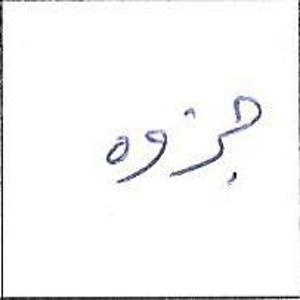 جزوه